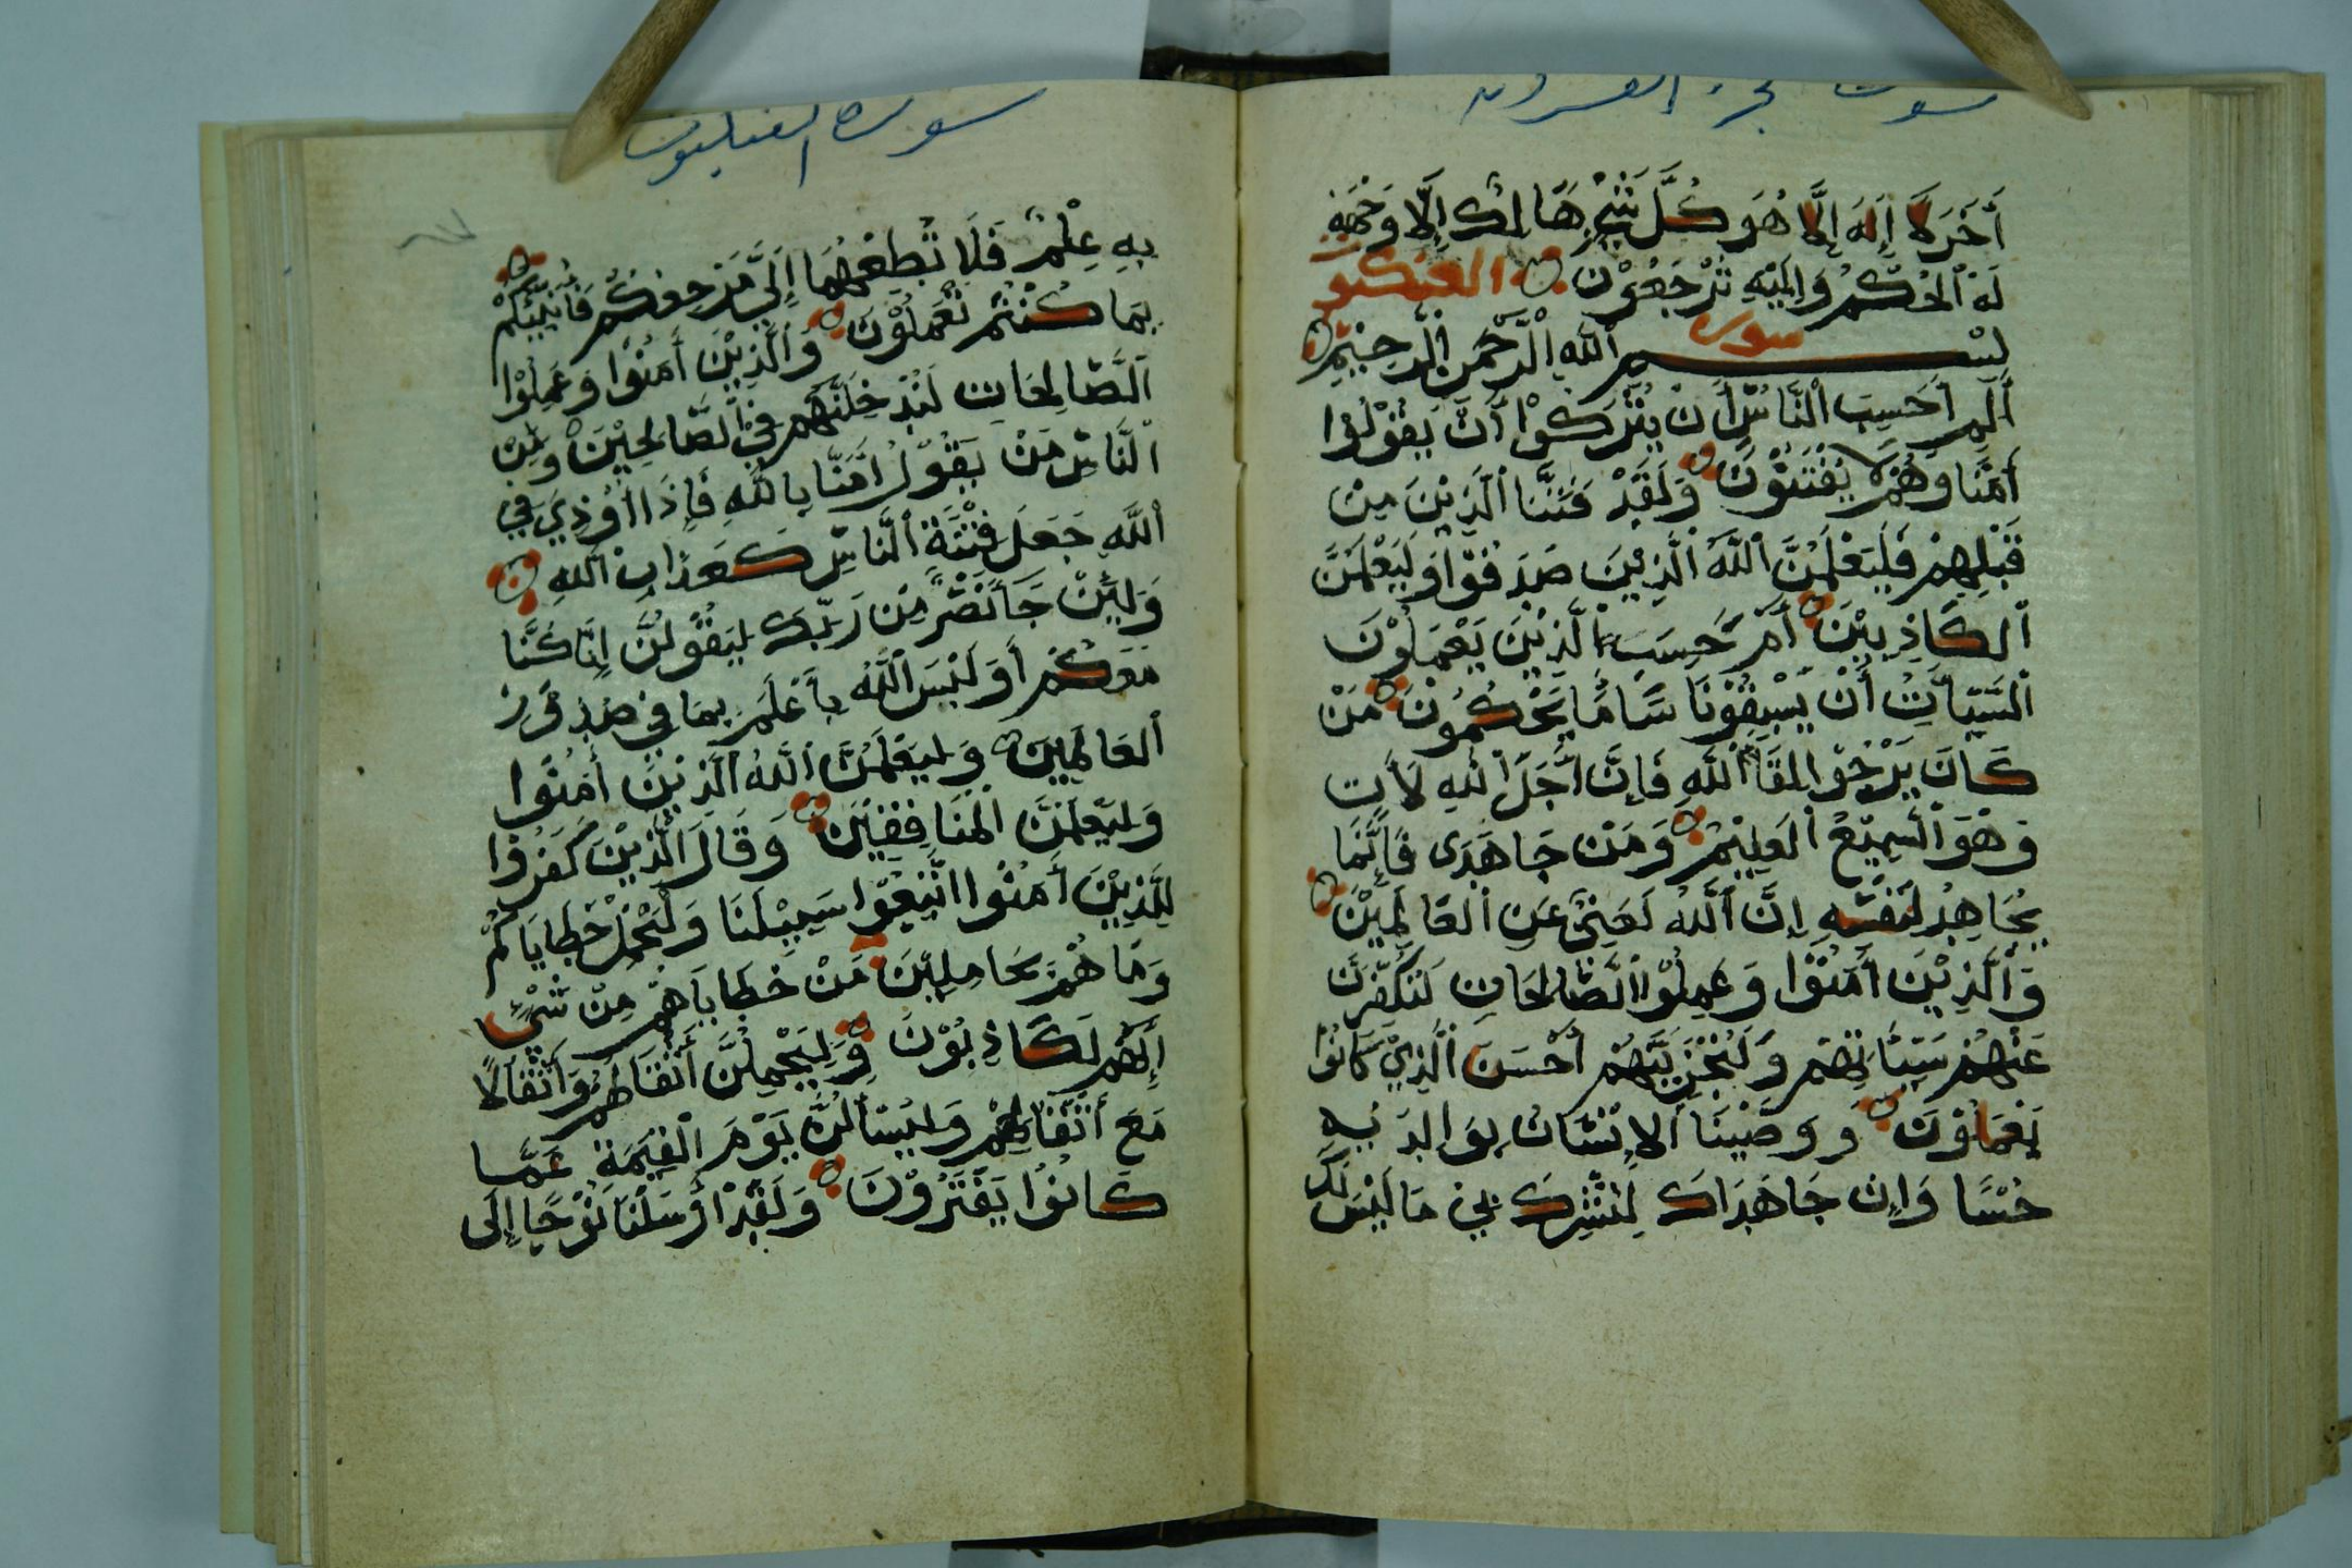 أَخَرَ لَا إِلَهَ إِلَّا هُوَ كُلُّ شَيْءٍ هَالِكٌ إِلَّا وَجْهَهُ
لَهُ الْحُكْمُ وَإِلَيْهِ تُرْجَعُوْنَ
سورة العنكبو
بسم اللّٰه الرَّحْمن الرَّحِيْمِ
أَلم أَحَسِبَ النَّاسُ أَنْ يُتْرَكُوْا أَنْ يَقُوْلُوْا
أَمَنَّا وَهُمْ لَا يُفْتَنُوْنَ وَلَقَدْ فَتَنَّا الَّذِيْنَ مِنْ
قَبْلِهِمْ فَلَيَعْلَمَنَّ اللَّهُ الَّذِيْنَ صَدَقُوْا وَلَيَعْلَمَنَّ
الكَاذِبِيْنَ أَمْ حَسِبَ الَّذِيْنَ يَعْمَلُوْنَ
السَّيِّاَتِ أَنْ يَسْبِقُوْنَا سَا مَا يَحْكُمُوْنَ مَنْ
كَانَ يَرْجُوْا لِقَا اللَّهِ فَإِنَّ أَجَلَ اللهِ لَأَتٍ
وَهُوَ السَّمِيْعُ الْعَلِيْمُ وَمَنْ جَاهَدَى فَإِنَّمَا
يُجَاهِدُ لِنَفْسِهِ إِنَّ اللَّهَ لَغَنِيٌّ عَنِ العَالَمِيْنَ
وَالَّذِيْنَ أَمَنُوْا وَعَمِلُوْا الصَّالِحَاتِ لَنُكَفِّرَنَّ
عَنْهُمْ سَيِّئَاتِهِمْ وَلَنَجْزِيَنَّهُمْ أَحْسَنَ الَّذِيْ كَانُوْا
يَعْمَلُوْنَ وَوَصَّيْنَا الإِنْسَانَ بِوَالِدَيْهِ
حُسْنًا وَإِنْ جَاهَدَاكَ لِتُشْرِكَ بِيْ مَا لَيْسَ لَكَ
سورة العنكبوت
بِهِ عِلْمٌ فَلَا تُطِعْهُمَا إِلَيَّ مَرْجِعُكُمْ فَأُنَبِّئُكُمْ
بِمَا كُنْتُمْ تَعْمَلُوْنَ وَالَّذِيْنَ أَمَنُوْا وَعَمِلُوْا
الصَّالِحَاتِ لَنُدْخِلَنَّهُمْ فِيْ الصَّالِحِيْنَ وَمِنَ
النَّاسِ مَنْ يَقُوْلُ اَمَنَّا بِاللَّهِ فَإِذَا أُوْذِيَ فِي
اللَّهِ جَعَلَ فِتْنَةَ النَّاسِ كَعَذَابِ اللهِ
وَلَئِنْ جَاَ نَصْرٌ مِنْ رَبِّكَ لَيَقُوْلُنَّ إِنَّا كُنَّا
مَعَكُمْ أَوَ لَيْسَ اللَّهُ بِأَعْلَمَ بِمَا فِي صُدُوْرِ
العَالَمِينَ وَلَيَعْلَمَنَّ اللَّهُ الَّذِيْنَ أَمَنُوْا
وَلَيَعْلَمَنَّ الْمُنَافِقِيْنَ وَقَالَ الَّذِيْنَ كَفَرُوْا
لِلَّذِيْنَ أَمَنُوْا اتَّبِعُوْا سَبِيْلَنَا وَلْنَحْمِلْ خَطَايَاكُمْ
وَمَا هُمْ بِحَامِلِيْنَ مَنْ خَطَايَاهُمْ مِنْ شَيْءٍ
إِنَّهُمْ لَكَاذِبُوْنَ وَلَيَحْمِلُنَّ أَثْقَالَهُمْ وَأَثْقَالًا
مَعَ أَثْقَالِهِمْ وَلَيُسْأَلُنَّ يَوْمَ الْقِيَمَةِ عَمَّا
كَانُوْا يَفْتَرُوْنَ وَلَقَدْ أَرْسَلْنَا نُوْحًا إِلَى